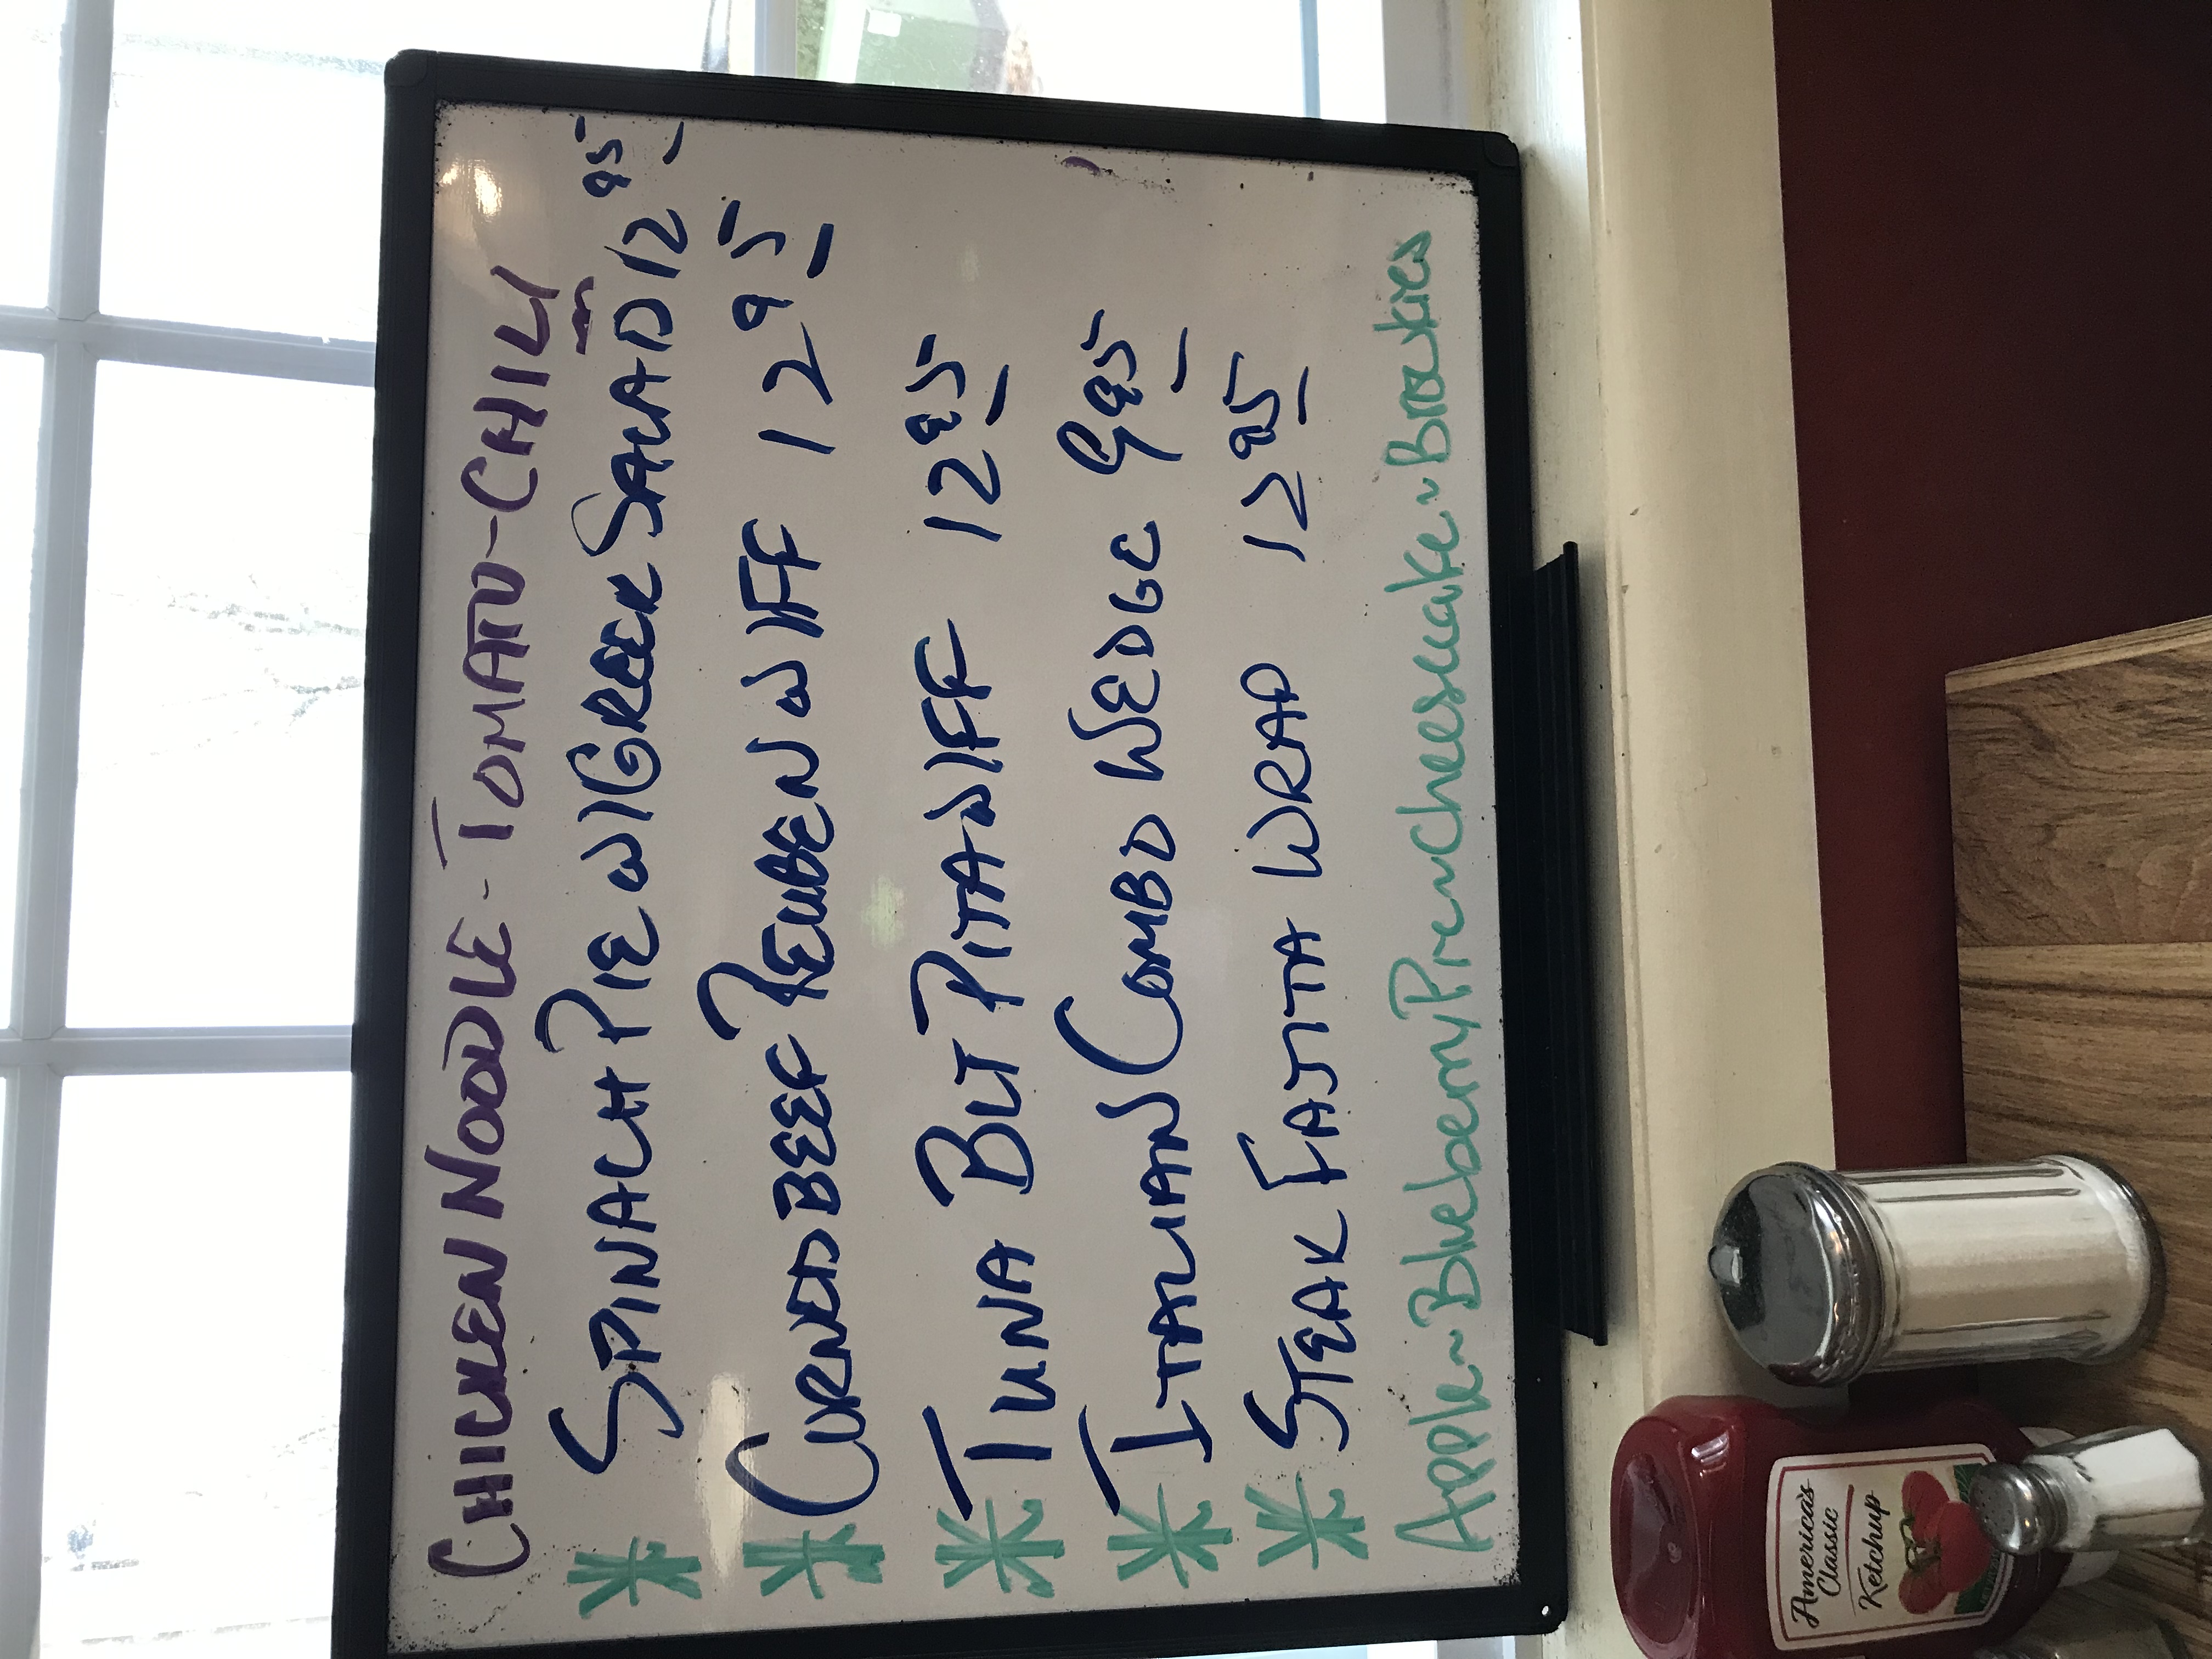 CHICKEN NOODLE - TOMATO - CHILI
* SPINACH PIE W/GREEK SALAD 12 95
* CORNED BEEF REUBEN W/FF 12 95
* TUNA BLT PITA W/FF 12 95
* ITALIAN COMBO WEDGE 9 95
* STEAK FAJITA WRAP 12 95
Apple~Blueberry Pie~Cheesecake~Brownies
America's
Classic
Ketchup